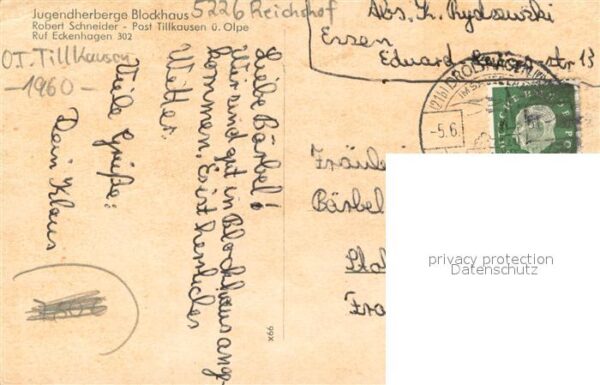 Jugendherberge Blockhaus
Robert Schneider - Post Tillkausen ü. Olpe
Ruf Eckenhagen 302
5226 Reichshof
OT. Tillkausen
-1960-
Liebe Bärbel!
Wir sind gut in Blockhaus ange-
kommen. Es ist herrliches
Wetter.
Viele Grüße:
Dein Klaus
x66
Abs. K. Rydzewski
Essen
Eduard str 13
(21b)
-5.6.
Fräulei
Bärbel
Fra
privacy protection
Datenschutz